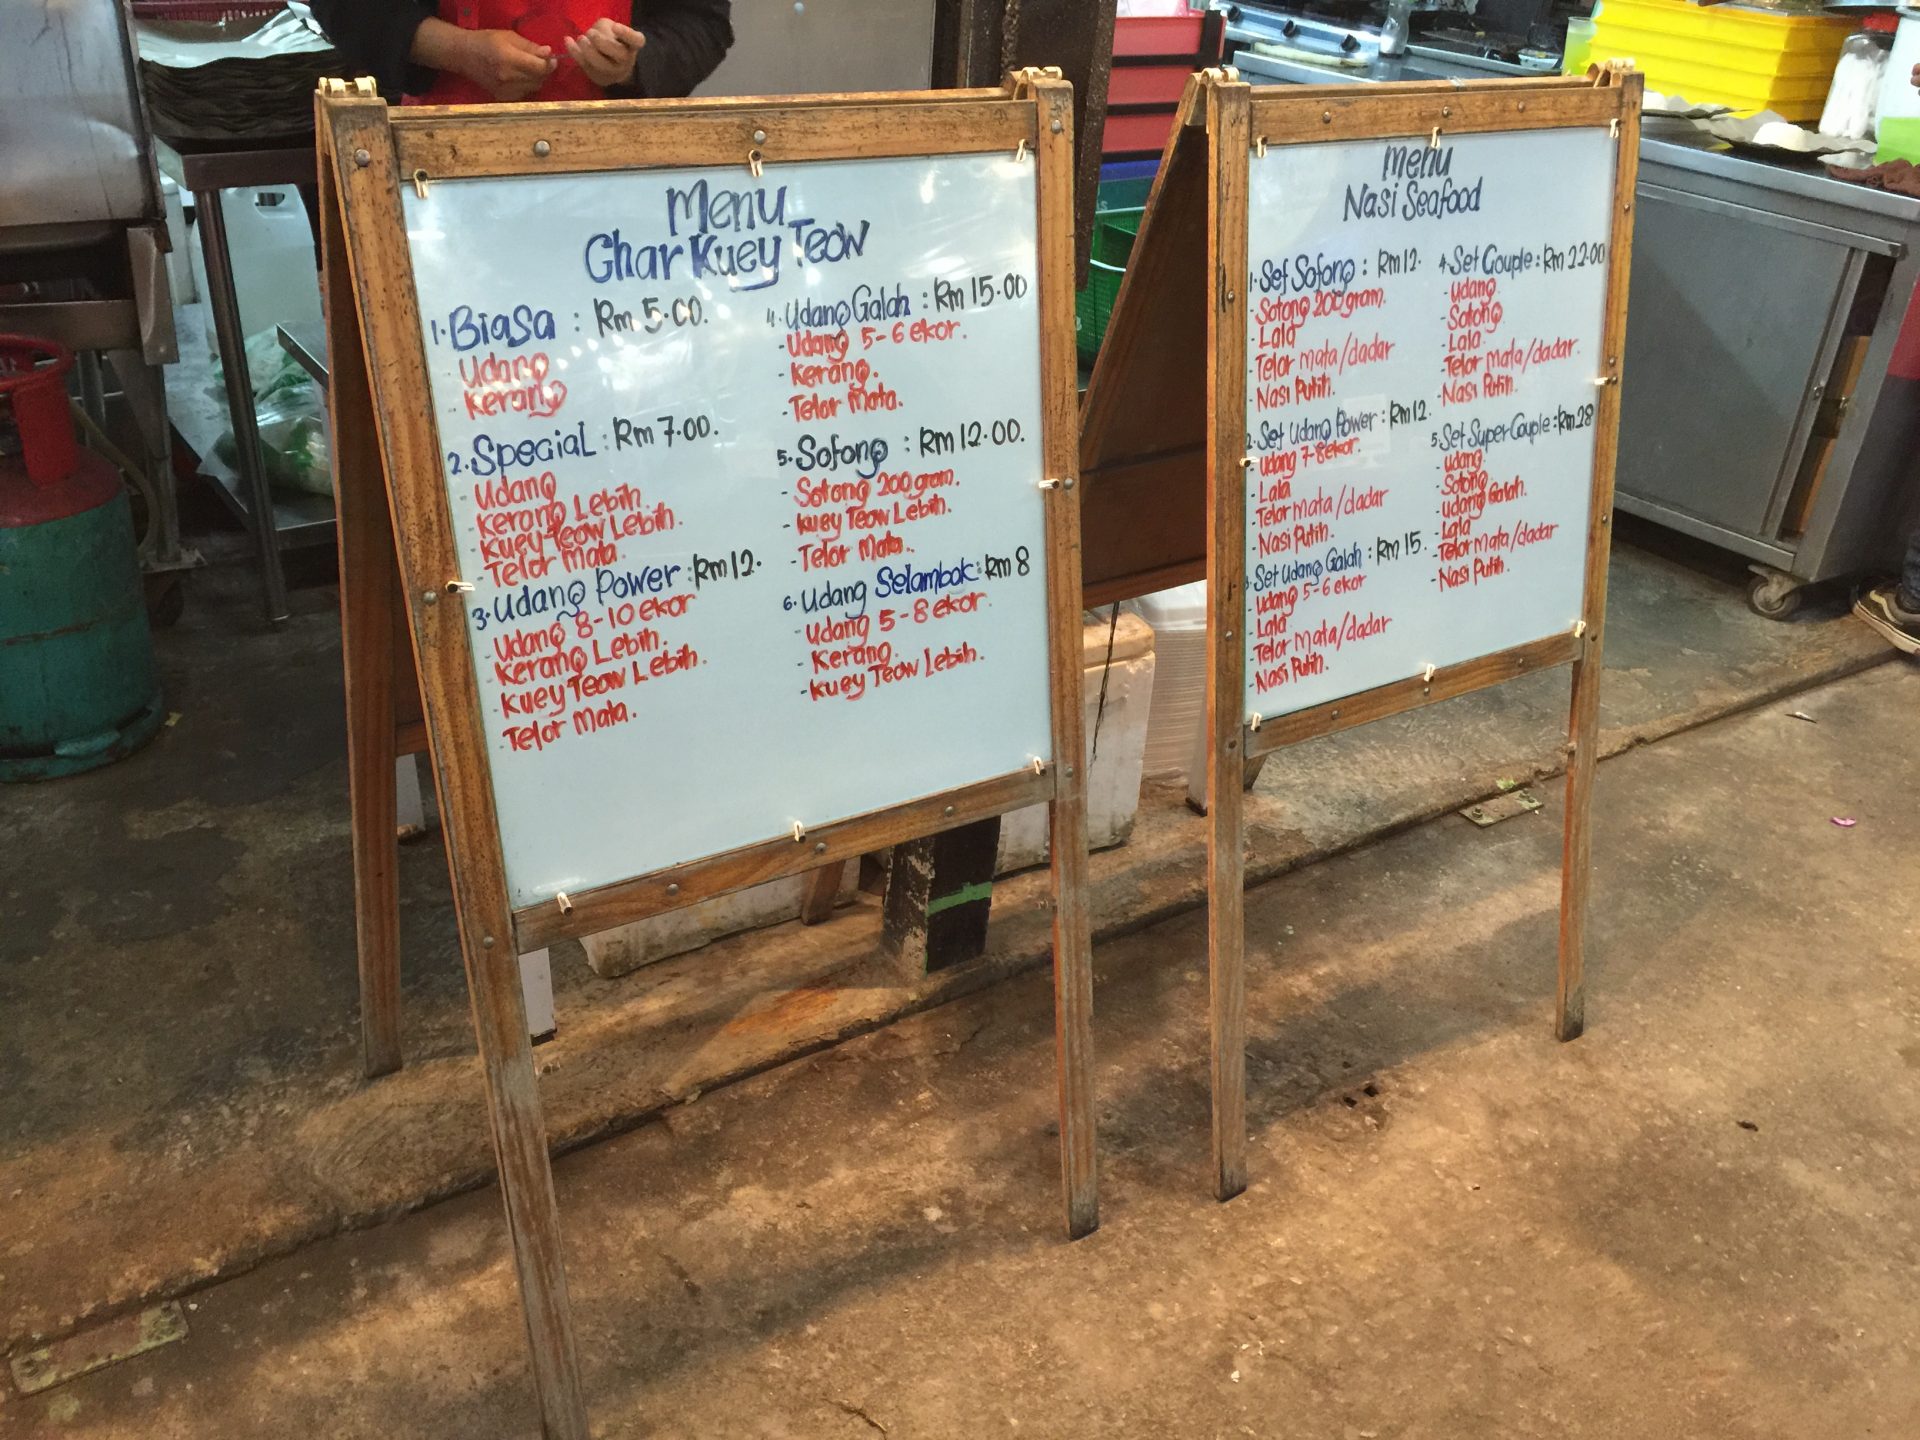 Menu
Char Kuey Teow
1. Biasa : Rm 5.00.
- Udang
- Kerang
2. Special : Rm 7.00.
- Udang
- Kerang Lebih.
- Kuey Teow Lebih.
- Telor Mata.
3. Udang Power : Rm 12.
- Udang 8-10 ekor
- Kerang Lebih.
- Kuey Teow Lebih.
- Telor Mata.
4. Udang Galah : Rm 15.00
- Udang 5-6 ekor.
- Kerang.
- Telor Mata.
5. Sotong : Rm 12.00.
- Sotong 200 gram.
- Kuey Teow Lebih.
- Telor Mata.
6. Udang Selambak : Rm 8
- Udang 5-8 ekor.
- Kerang.
- Kuey Teow Lebih.
Menu
Nasi Seafood
1. Set Sotong : Rm 12.
- Sotong 200 gram.
- Lala
- Telor mata/dadar
- Nasi Putih.
2. Set Udang Power : Rm 12.
- Udang 7-8 ekor.
- Lala
- Telor mata/dadar
- Nasi Putih.
3. Set Udang Galah : Rm 15.
- Udang 5-6 ekor
- Lala
- Telor mata/dadar
- Nasi Putih.
4. Set Couple : Rm 22.00
- Udang
- Sotong
- Lala
- Telor mata/dadar.
- Nasi Putih.
5. Set Super Couple : Rm 28
- Udang
- Sotong
- Udang Galah.
- Lala
- Telor mata/dadar
- Nasi Putih.